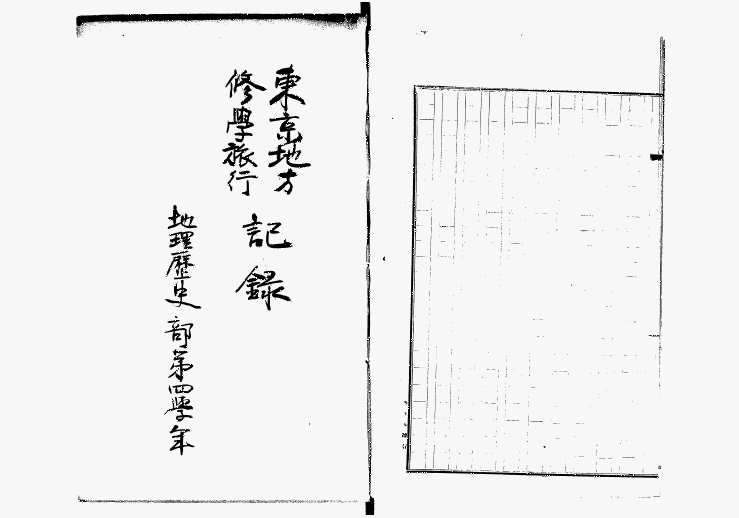 東京地方
修學旅行
記録
地理歴史部第四學年